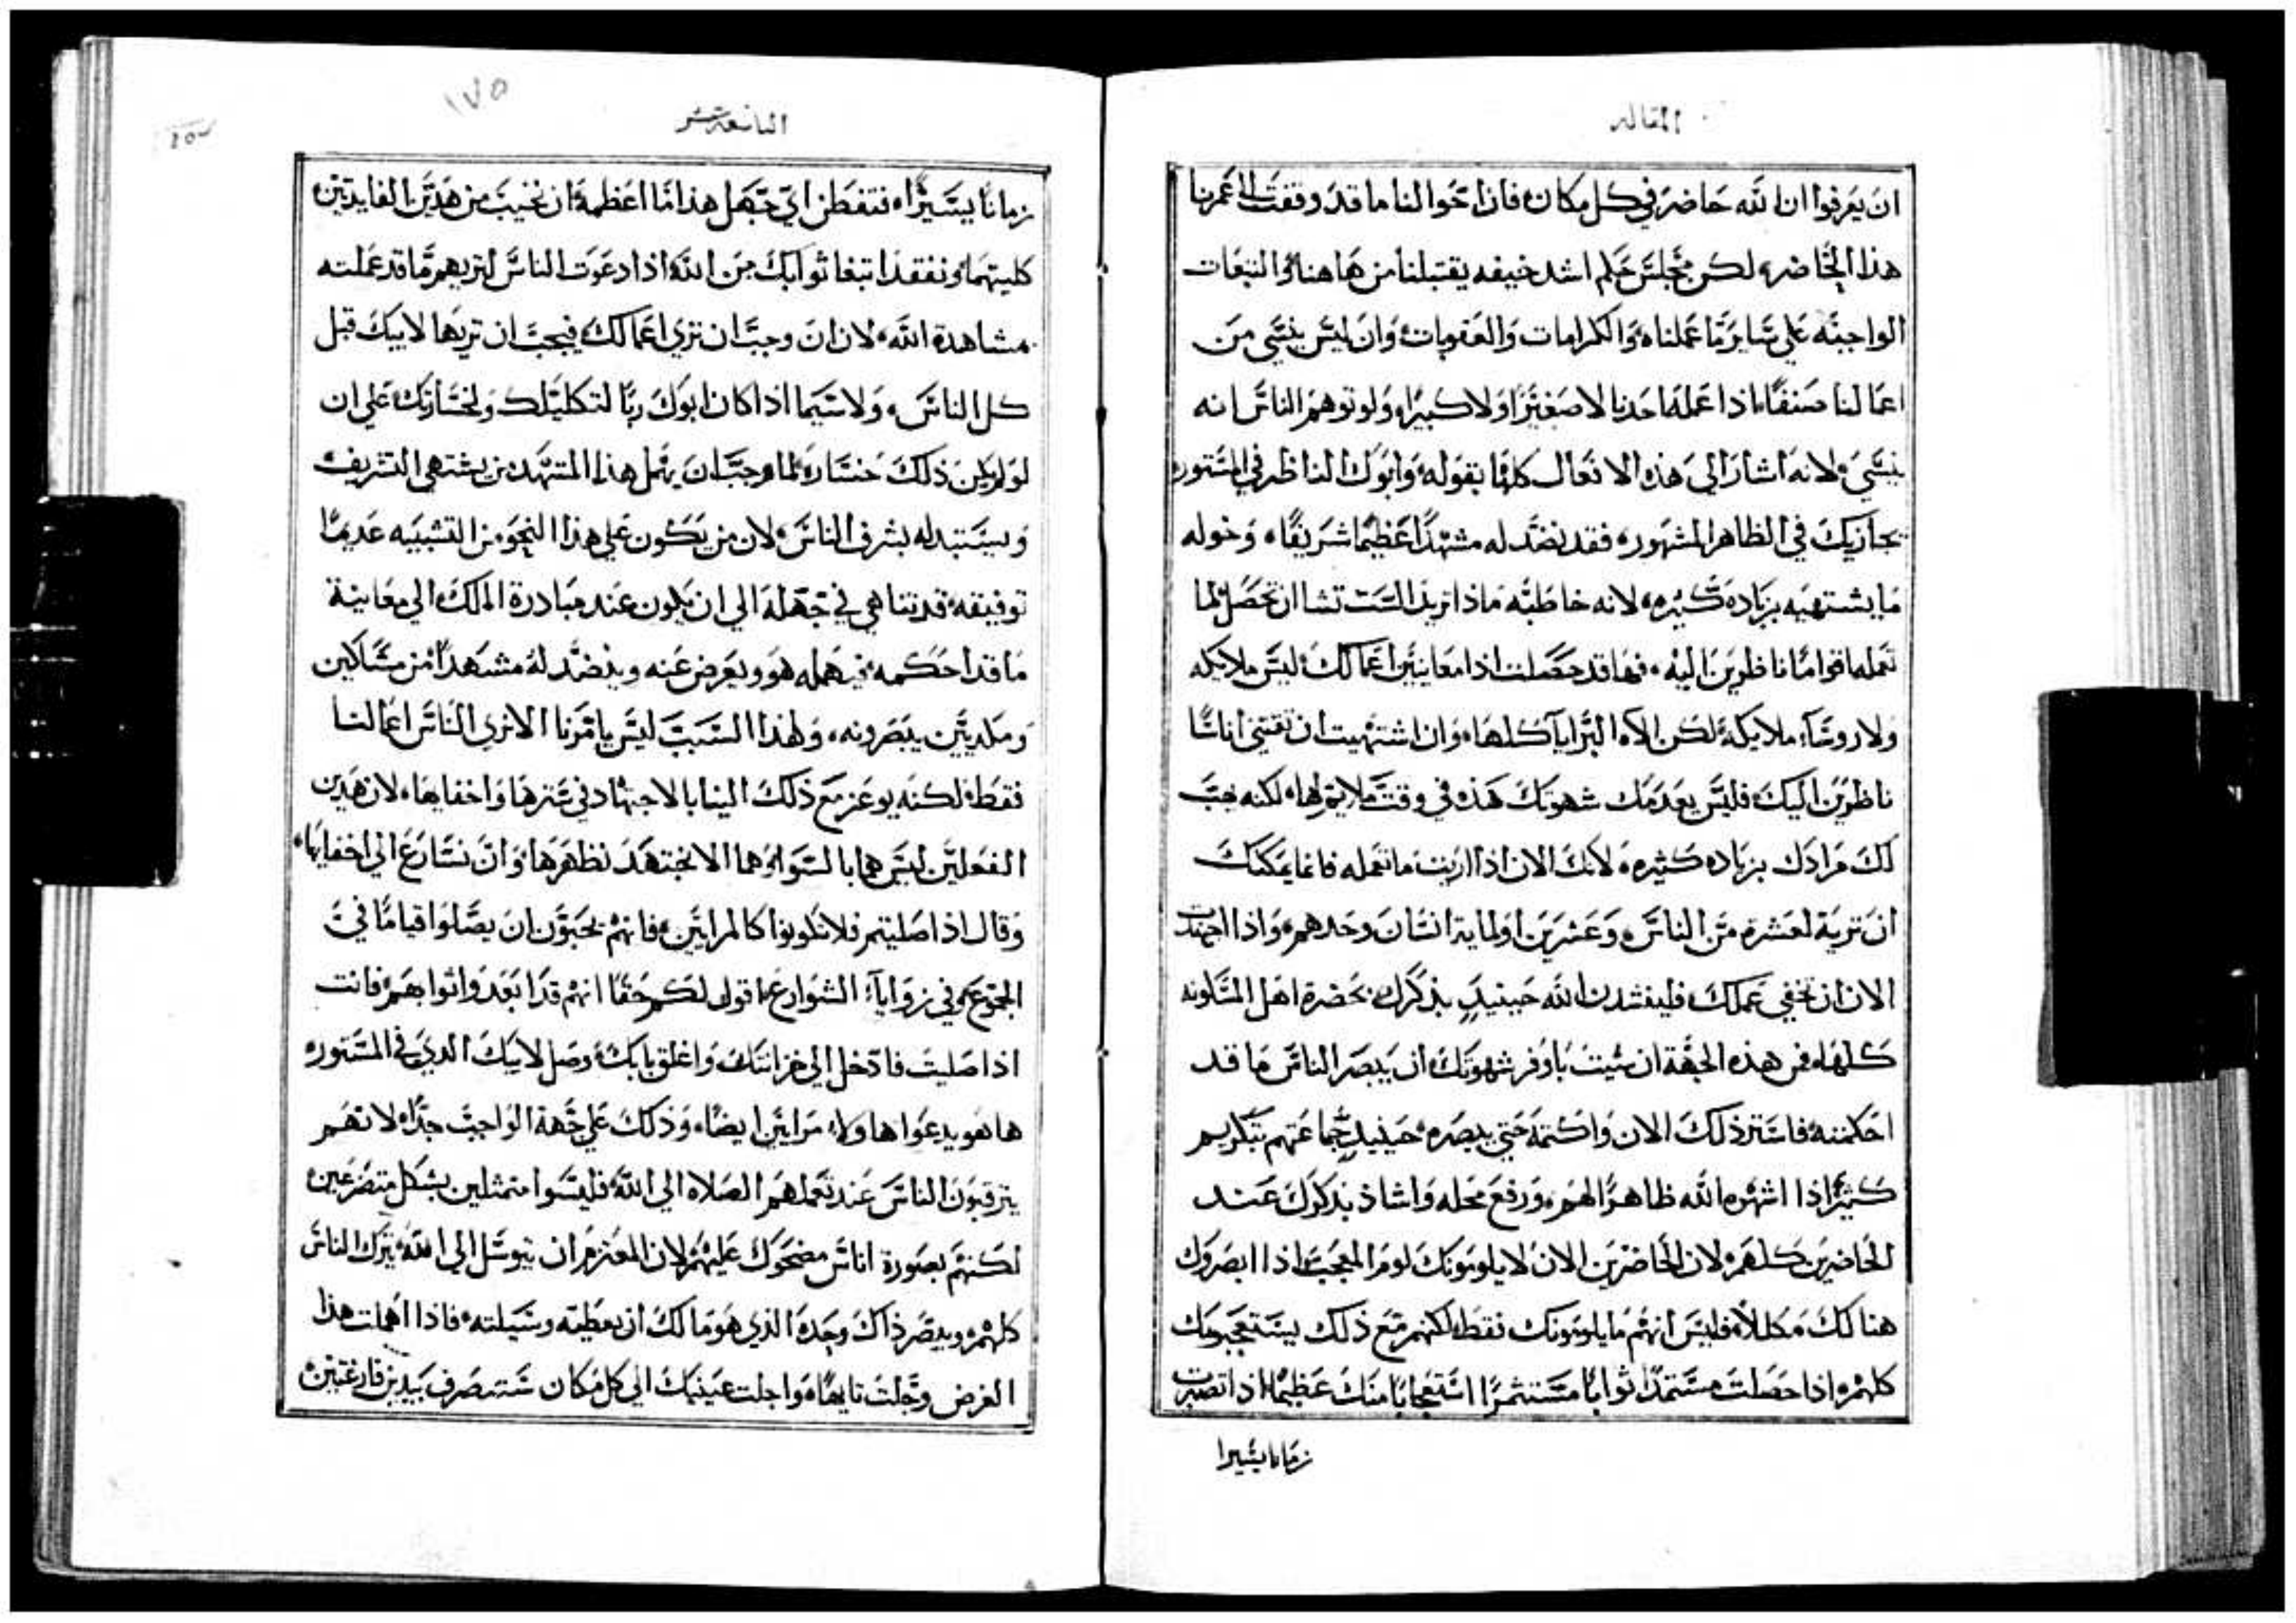 المقاله
ان يعرفوا ان الله حاضر في كل مكان فاذا احوالنا ما قد وقفت الى عمرنا
هذا الحاضر، لكن مجلس حكم اشد خيفه يقتبلنا من هاهنا، والتبعات
الواجبه علي ساير ما عملناه والكرامات والعقوبات، وان ليس ينسي من
اعمالنا صنفًا، اذا عمله احدنا لا صغيرًا ولا كبيرًا، ولو توهم الناس انه
ينسي، لانه اشار الي هذه الافعال كلها بقوله، وابوك الناظر في المستور،
يجازيك في الظاهر المشهور، فقد نضد له مشهدًا عظيمًا شريفًا، وخوله
ما يشتهيه بزياده كثيره، لانه خاطبه ماذا تريد الست تشا ان تحصل لما
تعمله اقوامًا ناظرين اليه، فها قد حصلت اذا معاينين اعمالك، ليس ملايكه
ولا روسآء ملايكة، لكن الاه البرايا كلها، وان اشتهيت ان تقتني اناسًا
ناظرين اليك، فليس يعدمك شهوتك هذه في وقت ملايم لها، لكنه يهب
لك مرادك بزياده كثيره، لانك الان اذا اريت ما تعمله فانما يمكنك
ان تريه لعشره من الناس، وعشرين او لماية انسان وحدهم، واذا اجتهدت
الان ان تخفي عملك فليفشدن الله حينيدٍ بذكرك بحضرة اهل المسكونه
كلها، فمن هذه الجهة ان شيت باوفر شهوتك، ان يبصر الناس ما قد
احكمته، فاستر ذلك الان واكتمه حتي يبصره حينيدٍ جماعتهم بتكريم
كثير، اذا اشهره الله ظاهرًا لهم، ورفع محله واشاذ بذكرك عند
الحاضرين كلهم، لان الحاضرين الان لا يلومونك لوم المعجب اذا ابصروك
هنالك مكللًا، فليس انهم ما يلومونك فقط، لكنهم مع ذلك يستعجبونك
كلهم، اذا حصلت مستمدًا ثوابًا مستثمرًا استعجابًا منك عظيمًا، اذا تصبرت
زمانا يسيرا
التاسعة عشر
١٧٥
زمانًا يسيرًا، فتفطن اي جهل هذا ما اعظمه، ان نخيب من هذين الفايدتين
كليتهما، ونفقد ابتغا ثوابك من الله، اذا دعوت الناس لتريهم ما قد عملته
مشاهدة الله، لان ان وجب ان تري اعمالك، فيجب ان تريها لابيك قبل
كل الناس، ولا سيما اذا كان ابوك ربًا لتكليلك ولخسارتك، علي ان
لو لم يكن ذلك خساره، لما وجب ان يهمل هذا المشهد من يشتهي التشريف،
ويستبدله بشرف الناس، لان من يكون علي هذا النحو من التشبيه عديمًا
توفيقه، قد تناهي في جهله الي ان يكون عند مبادرة الملك الي معاينة
ما قد احكمه، فيهمله هو ويعرض عنه وينضد له مشهدًا من مساكين
ومكديين يبصرونه، ولهذا السبب ليس يامرنا الا نري الناس اعمالنا
فقط، لكنه يوعز مع ذلك الينا بالاجتهاد في سترها واخفايها، لان هذين
الفعلين ليس هما بالسوا، وهما الا نجتهد نظهرها، وان نسارع الي اخفايها،
وقال اذا صليتم فلا تكونوا كالمرايين، فانهم يحبون ان يصلوا قيامًا في
الجموع وفي زوايا الشوارع، اقول لكم حقًا انهم قد ابعدوا ثوابهم، فانت
اذا صليت فادخل الي خزانتك، واغلق بابك، وصل لابيك الدي في المستور،
ها هو يدعوا هاولاء مرايين ايضًا، وذلك علي جهة الواجب جدًا، لانهم
يترقبون الناس عند تعملهم الصلاه الي الله، فليسوا متمثلين بشكل متضرعين،
لكنهم بصورة اناس مضحوك عليهم، لان المعتزم ان يتوسل الي الله، يترك الناس
كلهم، ويبصر ذاك وحده الذي هو مالك ان يعطيه وسيلته، فاذا اهملت هذا
الغرض وجلت تايهًا، واجلت عينيك الي كل مكان ستنصرف بيدين فارغتين،